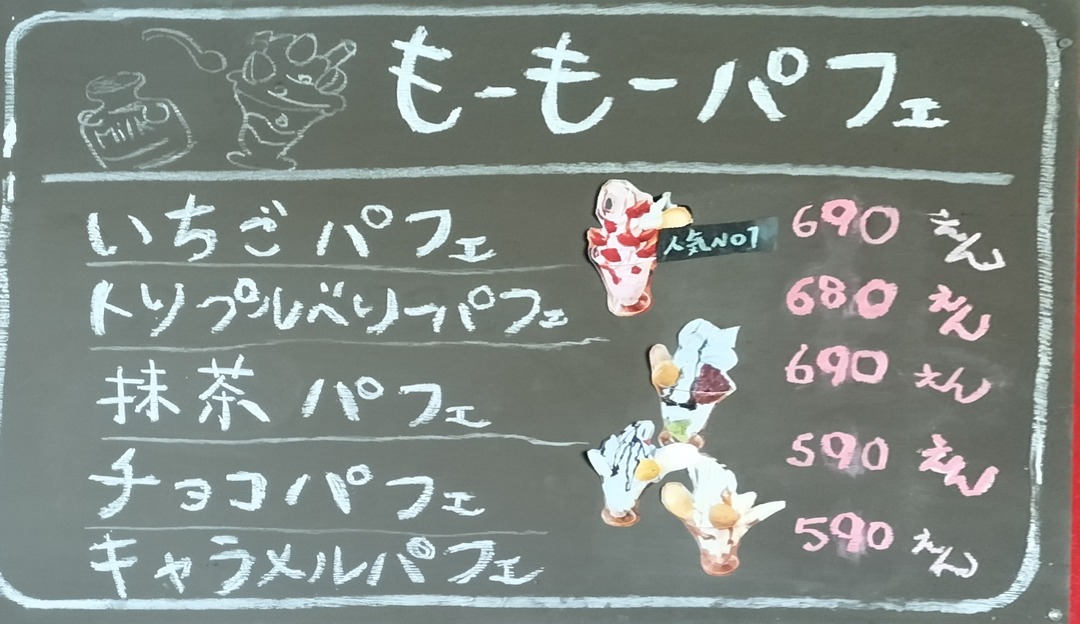 もーもーパフェ
Milk
いちごパフェ 人気NO1 690えん
トリプルベリーパフェ 680えん
抹茶パフェ 690えん
チョコパフェ 590えん
キャラメルパフェ 590えん